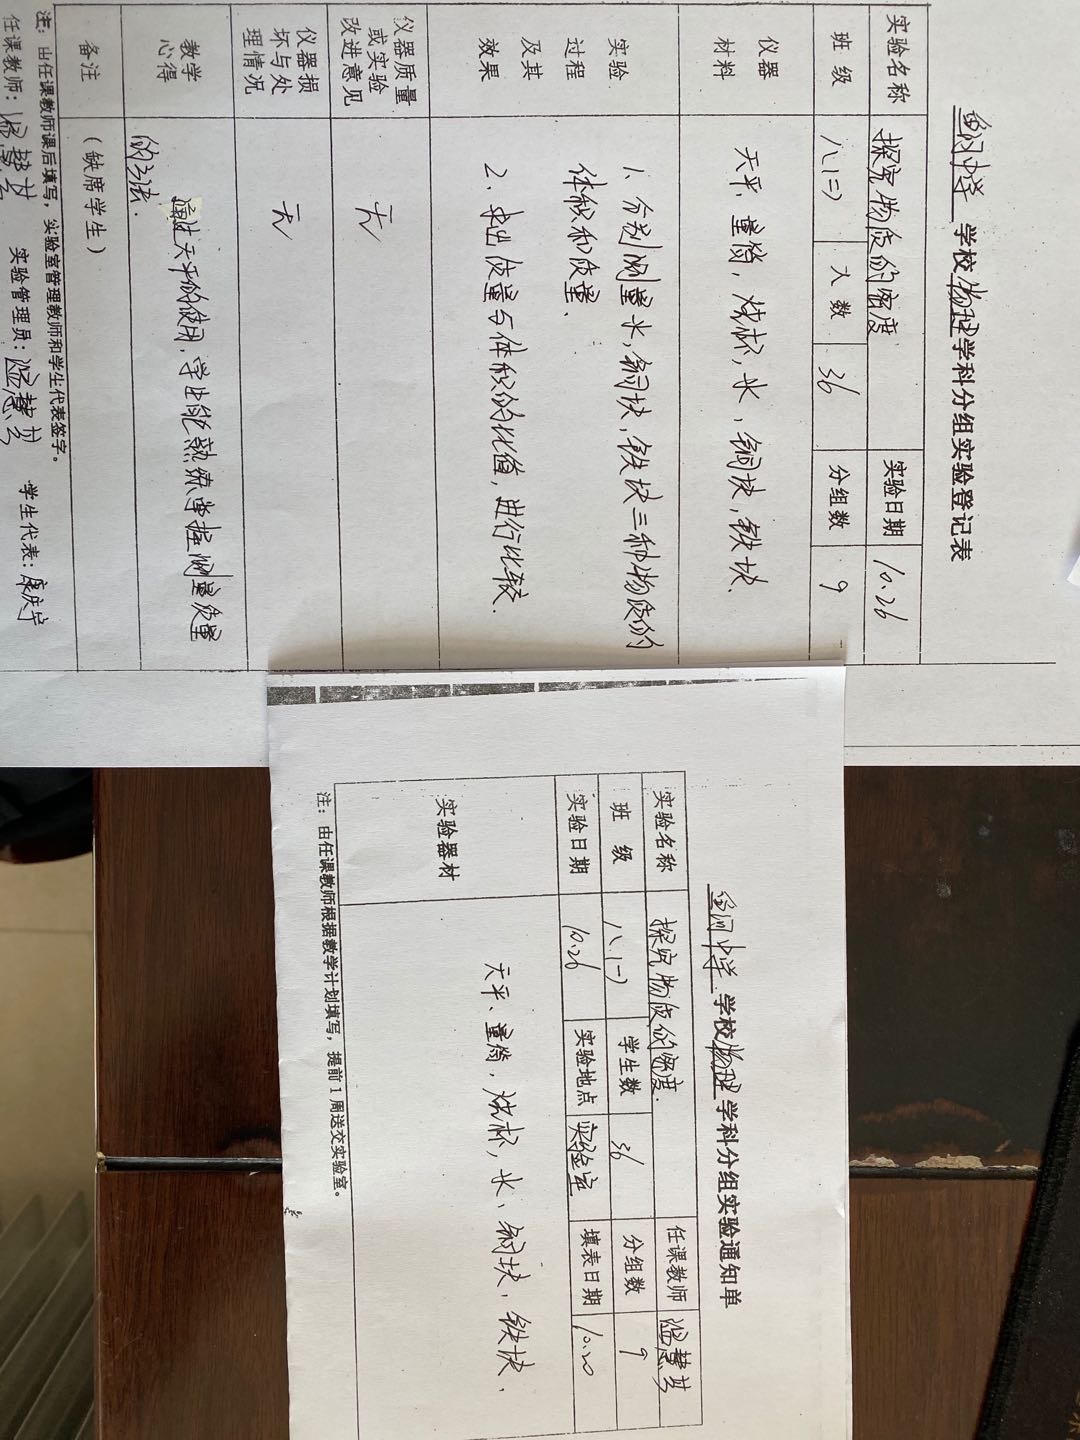 鱼河中学 学校物理学科分组实验登记表
实验名称 探究物质的密度 实验日期 10.26
班 级 八、(二) 人 数 36 分组数 9
仪器
材料
天平、量筒，烧杯，水，铜块，铁块、
实验
过程
及其
效果
1、分别测量水，铜块，铁块三种物质的
体积和质量、
2、求出质量与体积的比值，进行比较.
仪器质量
或实验
改进意见
无
仪器损
坏与处
理情况
无
教学
心得
通过天平的使用，学生能熟练掌握测量质量
的方法.
备注 （缺席学生）
注：由任课教师课后填写，实验室管理教师和学生代表签字。
任课教师： 实验管理员： 学生代表：康庆宇
鱼河中学 学校物理学科分组实验通知单
实验名称 探究物质的密度. 任课教师
班 级 八、(一) 学生数 36 分组数 9
实验日期 10.26 实验地点 实验室 填表日期 10.20
实验器材
天平、量筒，烧杯，水，铜块，铁块，
注：由任课教师根据教学计划填写，提前1周送交实验室。